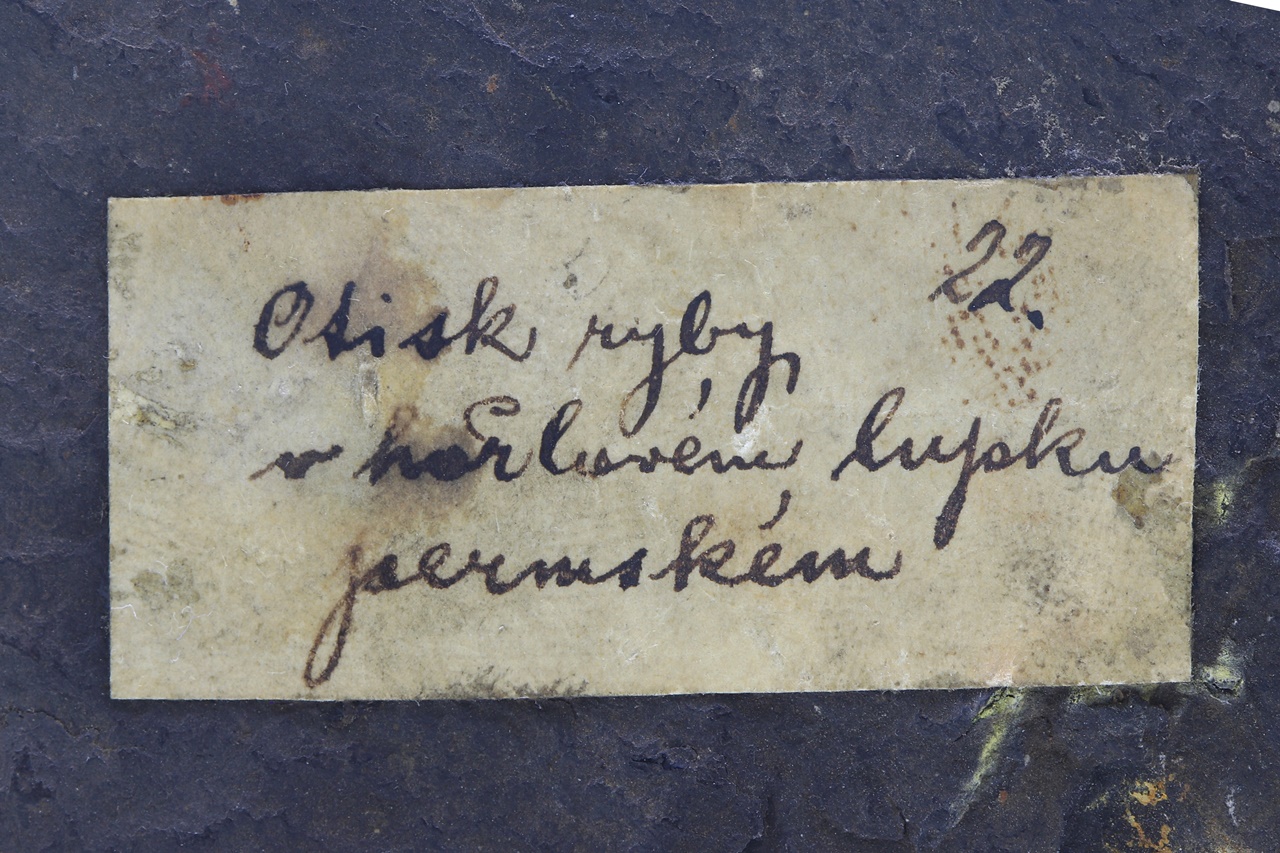 22.
Otisk ryby,
v hořlavém lupku
permském